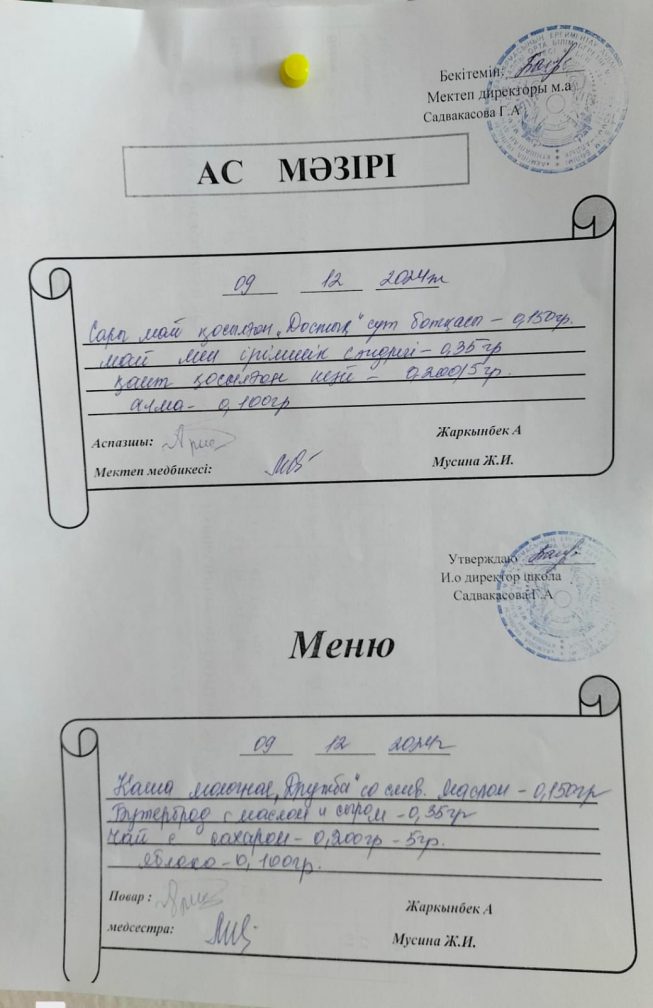 Бекітемін:
Мектеп директоры м.а
Садвакасова Г.А
АС МӘЗІРІ
09 12 2024ж
Сары май қосылған „Достық" сүт ботқасы – 0,150гр.
май мен ірімшік – 0,35гр
қант қосылған – 0,200/5гр.
алма – 0,100гр
Аспазшы: Жаркынбек А
Мектеп медбикесі: Мусина Ж.И.
Утверждаю
И.о директор школа
Садвакасова Г.А
Меню
09 12 2024г
Каша молочная „Дружба" со слив. маслом – 0,150гр
Бутерброд с маслом и сыром – 0,35гр
Чай с сахаром – 0,200гр – 5гр.
яблоко – 0,100гр.
Повар : Жаркынбек А
медсестра: Мусина Ж.И.